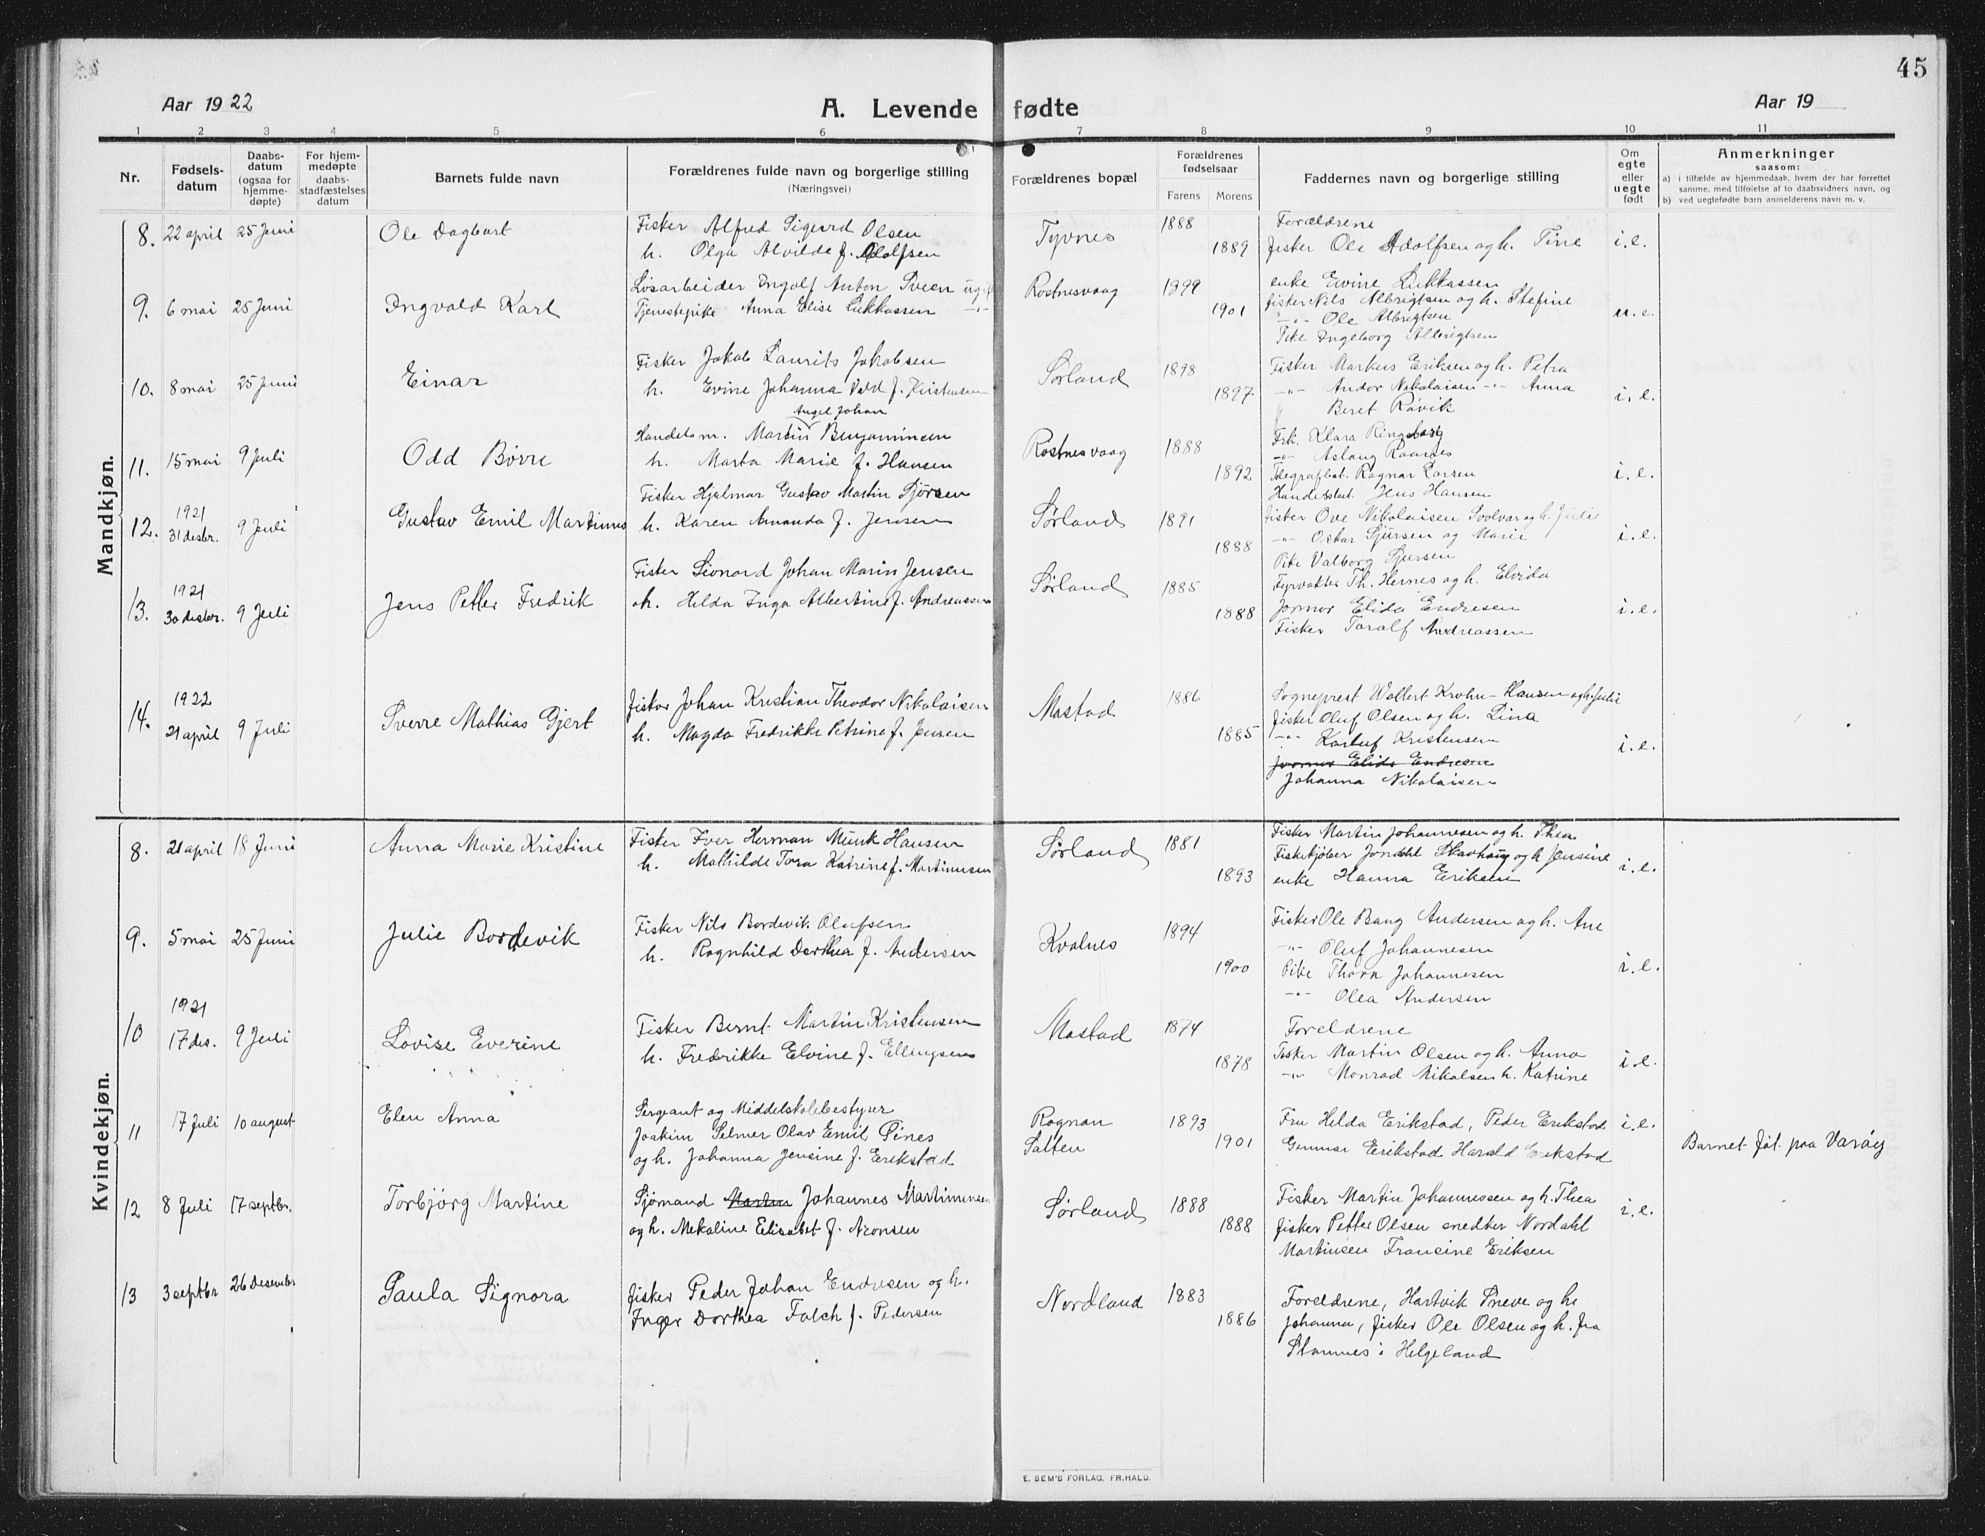 45
Aar 1922 A. Levende fødte Aar 19
1 2 3 4 5 6 7 8 9 10 11
Nr. Fødsels-datum Daabs-datum (ogsaa for hjemme-døpte) For hjem-medøpte daabs-stadfæstelses datum Barnets fulde navn Forældrenes fulde navn og borgerlige stilling (Næringsvei) Forældrenes bopæl Forældrenes fødselsaar Farens Morens Faddernes navn og borgerlige stilling Om egte eller uegte født Anmerkninger saasom:
a) i tilfælde av hjemmedaab, hvem der har forrettet samme, med tilføielse af to daabsvidners navn, og
b) ved uegtefødte barn anmelderens navn m. v.
Mandkjøn.
8. 22 april 25 Juni Ole Dagbart Fisker Alfred Sigurd Olsen Tyvnes 1888 Forældrene
h. Olga Alvilde f. Adolfsen 1889 fisker Ole Adolfsen og h. Tine i.e.
9. 6 mai 25 Juni Ingvald Karl Løsarbeider Ingolf Anton Sveen ugift Rostnesvaag 1899 enke Evine Lukkassen
Tjenestepike Anna Elise Lukkassen -"- 1901 fisker Nils Albrigtsen og h. Stefine u.e.
-"- Ole Albrigtsen
Pike Ingeborg Albrigtsen
10. 8 mai 25 Juni Einar Fisker Jakob Laurits Jakobsen Sørland 1898 Fisker Markus Eriksen og h. Petra
h. Evine Johanna f. Kristensen 1897 -"- Andor Nikolaisen -"- Anna i.e.
Beret Røvik
Angel Johan
11. 15 mai 9 Juli Odd Børre Handelsm. Martin Benjaminsen Rostnesvaag 1888 Frk. Klara Ringeborg
h. Marta Marie f. Hansen 1892 -"- Aslaug
Telegrafbst. Ragnar Larsen i.e.
Handelsbst. Jens Hansen
12. 1921 31 desbr. 9 Juli Gustav Emil Martinus Fisker Hjalmar Gustav Martin Sjørsen Sørland 1891 fisker Ove Nikolaisen Soolvar og h. Julie
h. Karen Amanda f. Jensen 1888 -"- Oskar Sjursen og Marie i.e.
Pike Valborg Sjursen
13. 1921 30 desbr. 9 Juli Jens Petter Fredrik Fisker Leonard Johan Marin Jensen Sørland 1885 Fyrvokter Th. Hernes og h. Elvida
h. Hilda Inga Albertine f. Andreassen 1888 Jomor Elida Endresen i.e.
Fisker Toralf Andreassen
14. 1922 21 april 9 Juli Sverre Mathias Gjert fisker Johan Kristian Theodor Nikolaisen Mastad 1886 Sogneprest Wollert Krohn-Hansen og h. Julie
h. Magda Fredrikke Petrine f. Jensen 1885 fisker Oluf Olsen og h. Lina
-"- Karluf Kristensen i.e.
Jormor Elida Endresen
Johanna Nikolaisen
Kvindekjøn.
8. 21 april 18 Juni Anna Marie Kristine Fisker Iver Herman Munk Hansen Sørland 1881 Fisker Martin Johannesen og h. Thea
h. Mathilde Tora Katrine f. Martinusen 1893 Fiskekjøber Jondahl Skavhaug og h. Jensine i.e.
enke Hanna Eriksen
9. 5 mai 25 Juni Julie Bordevik Fisker Nils Bordevik Olufsen Kvalnes 1894 Fisker Ole Bang Andersen og h. Ane
h. Ragnhild Dorthea f. Andersen 1900 -"- Oluf Johannesen i.e.
Pike Thora Johannesen
-"- Olea Andersen
10 1921 17 des. 9 Juli Lovise Everine Fisker Bernt Martin Kristensen Mastad 1874 Foreldrene
h. Fredrikke Elvine f. Ellingsen 1878 Fisker Martin Olsen og h. Anna i.e.
-"- Monrad Nikolsen h. Katrine
11 17 Juli 10 august Elen Anna Sergeant og Middelskolebestyrer Rognan 1893 Fru Hilda Erikstad, Peder Erikstad i.e.
Joakim Selmer Olav Emil Pines Salten 1901 Gunnar Erikstad Harald Erikstad Barnet føt. paa Værøy
og h. Johanna Jensine f. Erikstad
12 8 Juli 17 septbr. Torbjørg Martine Sjømand Martin Johannes Martinussen Sørland 1888 Fisker Martin Johannessen og h. Thea
og h. Mekaline Elisabet f. Aronsen 1888 fisker Petter Olsen snedker Nordahl i.e.
Martinsen Fransine Eriksen
13 3 septbr 26 Desember Paula Signora fisker Peder Johan Endresen og h. Nordland 1883 Foreldrene, Hartvik Sneve og h.
Inger Dorthea Falch f. Pedersen 1886 Johanna, fisker Ole Olsen og h. fra
Stamnes i Helgeland
E. SEM'S FORLAG, FR.HALD.